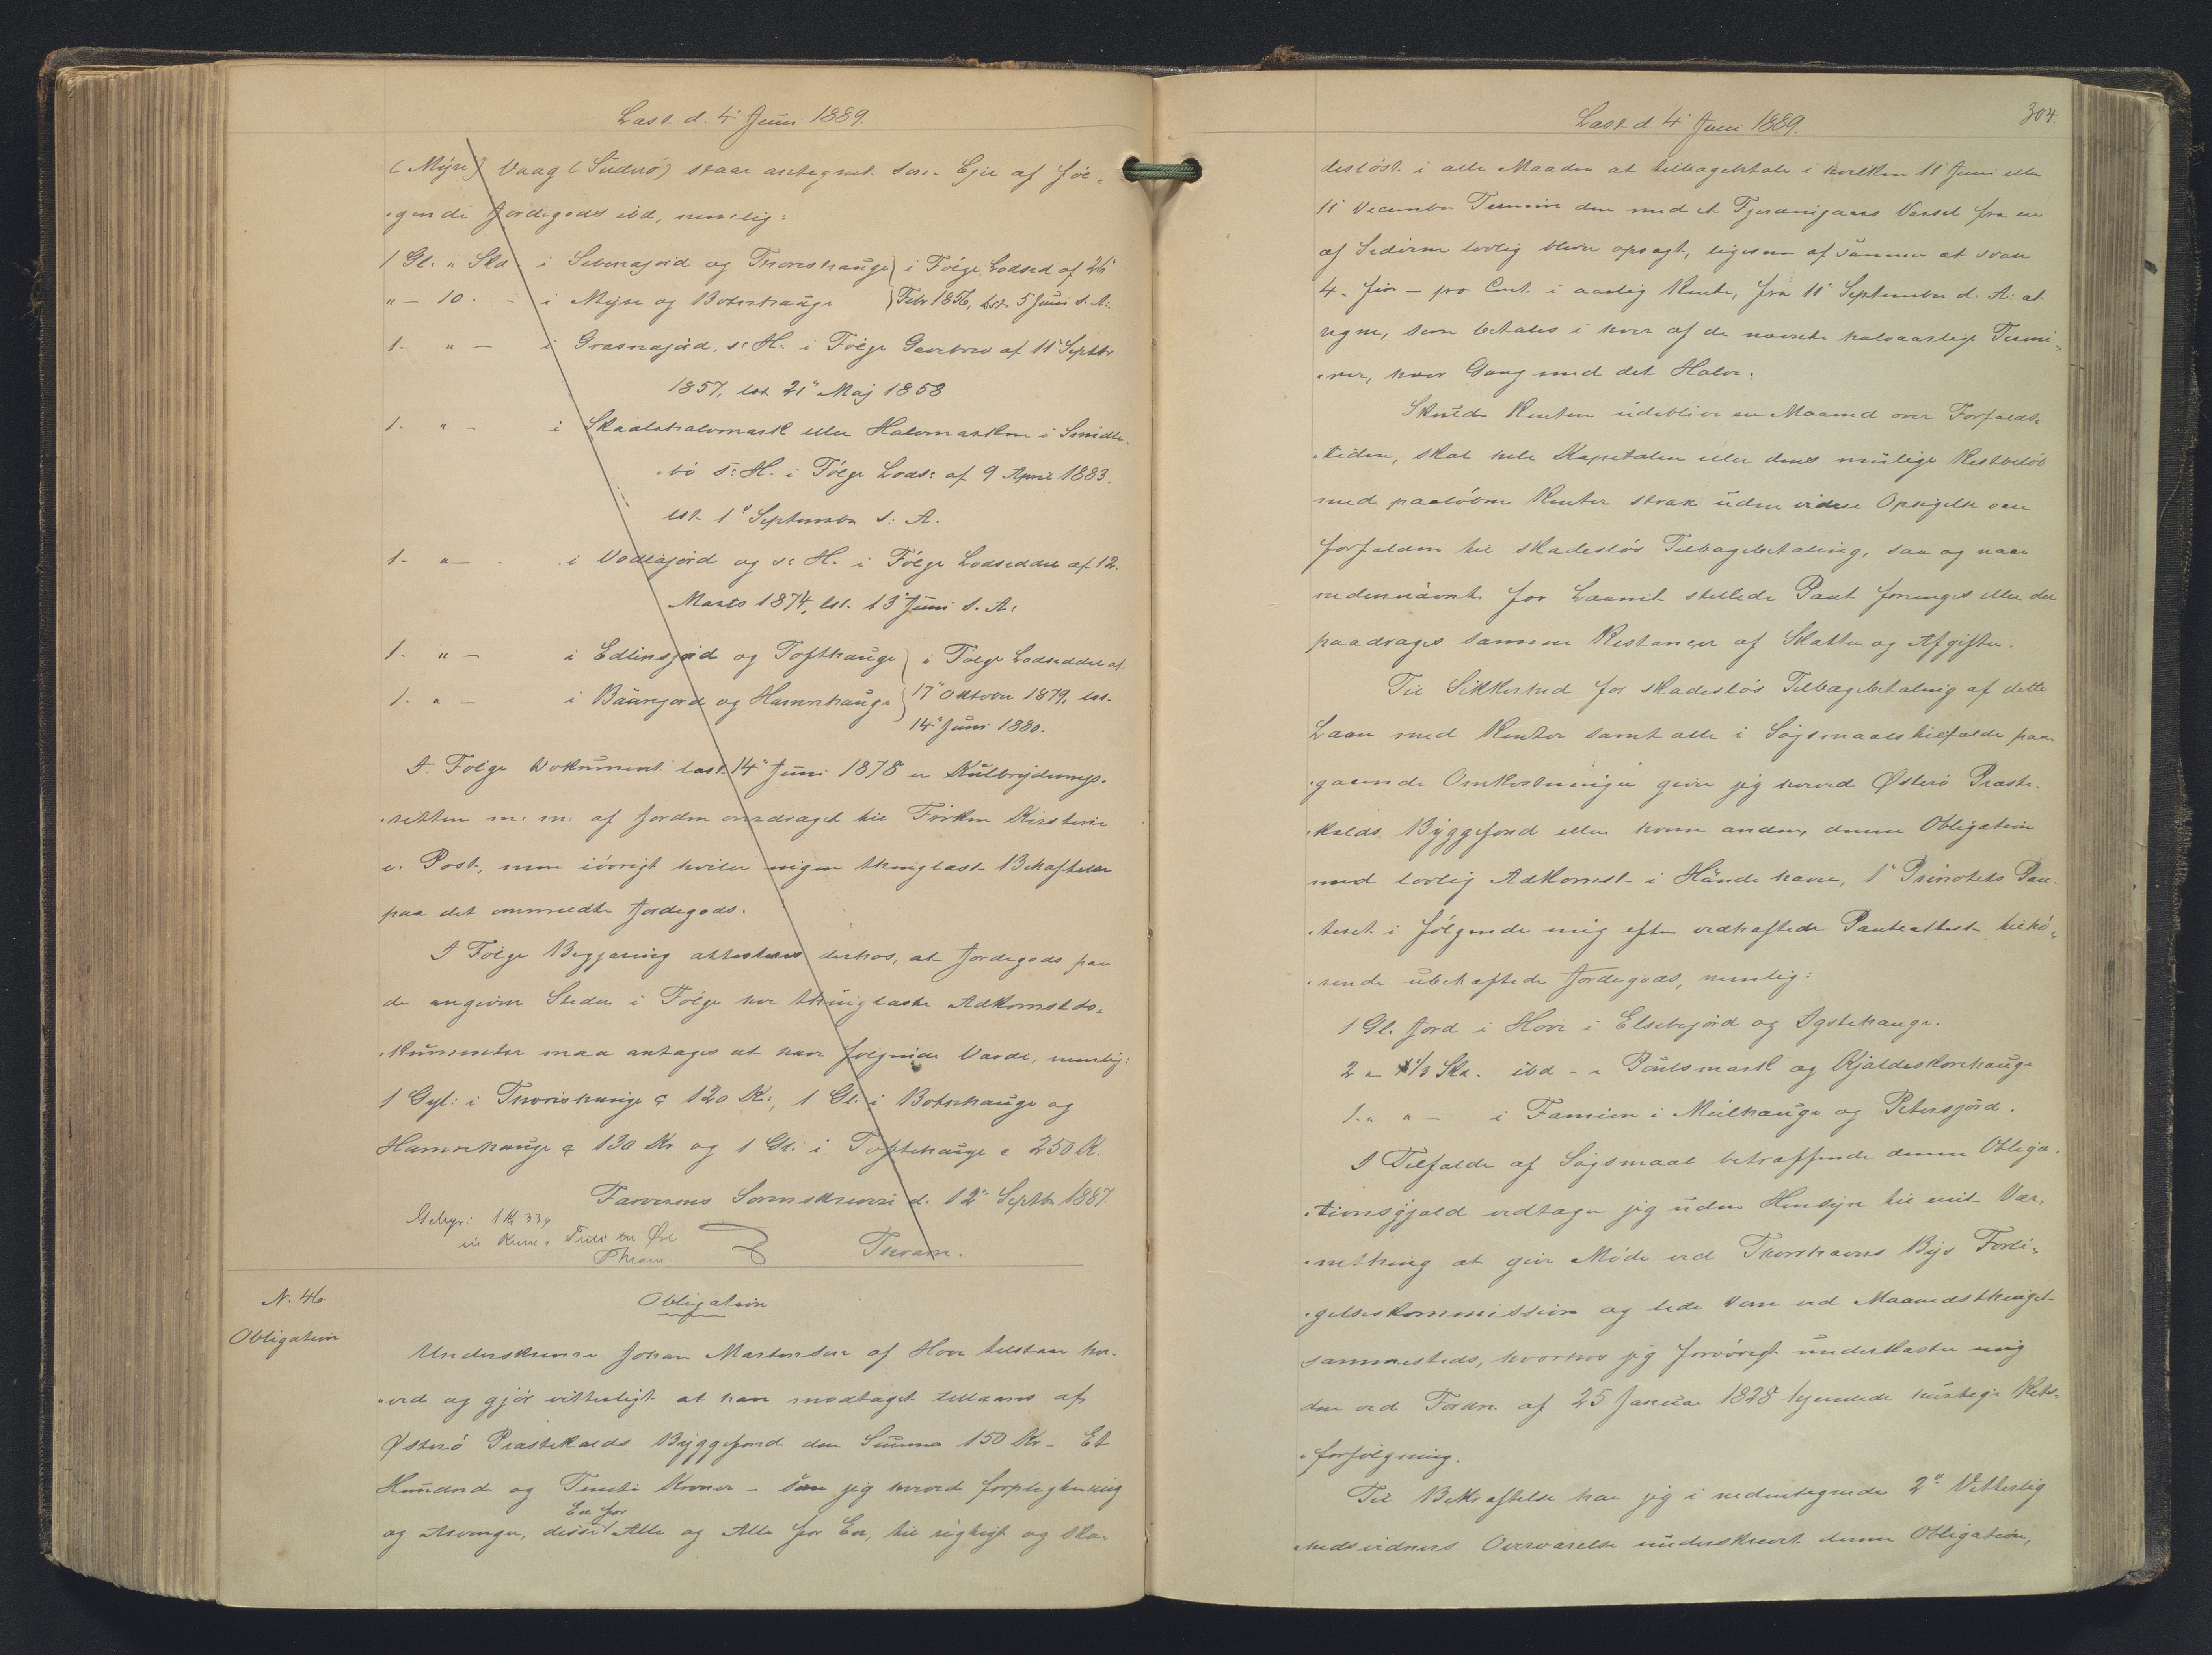 Læst d. 4' Juni 1889.
(Mýre) Vaag (Süderö) staar antegnet som Ejer af föl-
-gende Jordegods ibd, nemlig:
1 Gl. " Skd i Sebenajord og Thoreshauge } i Fölge Lodsed af 26'
" - 10. - i Mýre og Botnhauge } Febr 1856, læst 5 Juni s. A:
1. " - i Grasnajord, s: St. i Fölge Gavebrev af 11' Septbr
1857, læst 21" Maj 1858
1. " - i Skaalahalvmark eller Halvmarken i Smidle-
-bö s: St. i Fölge Lods: af 9 April 1883.
læst 1' September s: A.
1. " - i Vodlajord og s: St. i Fölge Lodseddel af 12.
Marts 1874, læst. 13' Juni s. A:
1. " - i Edlinsjord og Tofthauge } i Fölge Lodseddel af
1. " - i Bäurejord og Hamrehauge } 17" Oktober 1879, læst
14' Juni 1880.
I Fölge Dokument læst 14' Juni 1878 er Külbrydnings-
-retten m: m: af Jorden overdraget til Fröken Kirstine
v. Post, men iövrigt hviler ingen thinglæst Behæftelse
paa det ommeldte Jordegods.
I Fölge Begjæring attesteres derhos, at Jordegods paa
de angivne Steder i Fölge her thinglæste Adkomstdo-
-kumenter maa antages at have fölgende Værdi, nemlig:
1 Gyl: i Thorishauge c 120 Kr:, 1 Gl: i Botnhauge og
Hamrehauge c 130 Kr og 1 Gl: i Toftehauge c 250 K.
Færöernes Sorenskriveri d. 12" Septbr 1887
Gebyr: 1 Kr 33 ø
en Krone Treti tre Øre
Thram Thram.
N. 46 Obligation
Obligation
Underskrevne Johan Martensen af Hove tilstaar her-
-ved og gjör vitterligt at have modtaget tillaans af
Østerö Præstekalds Byggefond den Summa 150 Kr - Et
Hundrede og Femti Kroner - som jeg herved forpligter mig
En for
og Arvinger, disse Alle og Alle for En, til rigtigt og ska-
Læst d. 4' Juni 1889. 304.
deslöst i alle Maader at tilbagebetale i hvilken 11 Juni eller
11' December Termin den med et Fjerdingaars Varsel fra en
af Siderne lovlig bliver opsagt, ligesom af samme at svare
4 - fire - pro Cent i aarlig Rente, fra 11' September d. A: at
regne, som betales i hver af de nævnte halvaarlige Termi-
-ner, hver Gang med det Halve.
Skulde Renten udeblive en Maaned over Forfalds-
-tiden, skal hele Kapitalen eller dens mulige Restbelöb
med paalöbne Renter strax uden videre Opsigelse være
forfalden til skadeslös Tilbagebetaling, saa og naar
nedennævnte for Laanet stillede Pant forringes eller der
paadrages samme Restancer af Skatter og Afgifter.
Til Sikkerhed for skadeslös Tilbagebetaling af dette
Laan med Renter samt alle i Sögsmaalstilfælde paa-
-gaaende Omkostninger giver jeg herved Østerö Præste-
-kalds Byggefond eller hvem anden, denne Obligation
med lovlig Adkomst i Hænde haver, 1' Prioritets Pan-
-teret i fölgende mig efter vedhæftede Panteattest tilhö-
-rende ubehæftede Jordegods, nemlig:
1 Gl. Jord i Hove i Elsebejord og Agstehauge.
2 " 1/3 Sk. ibd - i Poulsmark og Kjaldeskorehauge
1 " " - i Famien i Mülhauge og Petersjord.
I Tilfælde af Sögsmaal betræffende denne Obliga-
-tionsgjæld vedtager jeg uden Hensyn til mit Vær-
-nething at give Möde ved Thorshavns Byes Forli-
-gelseskommission og lide Dom ved Maanedsthinget
sammesteds, hvorhos jeg forövrigt underkaster mig
den ved Fordn. af 25 Januar 1828 hjemlede hurtige Rets-
-forfölgning.
Til Bekræftelse har jeg i nedentegnede 2" Vitterlig
-hedsvidners Overværelse underskrevet denne Obligation,